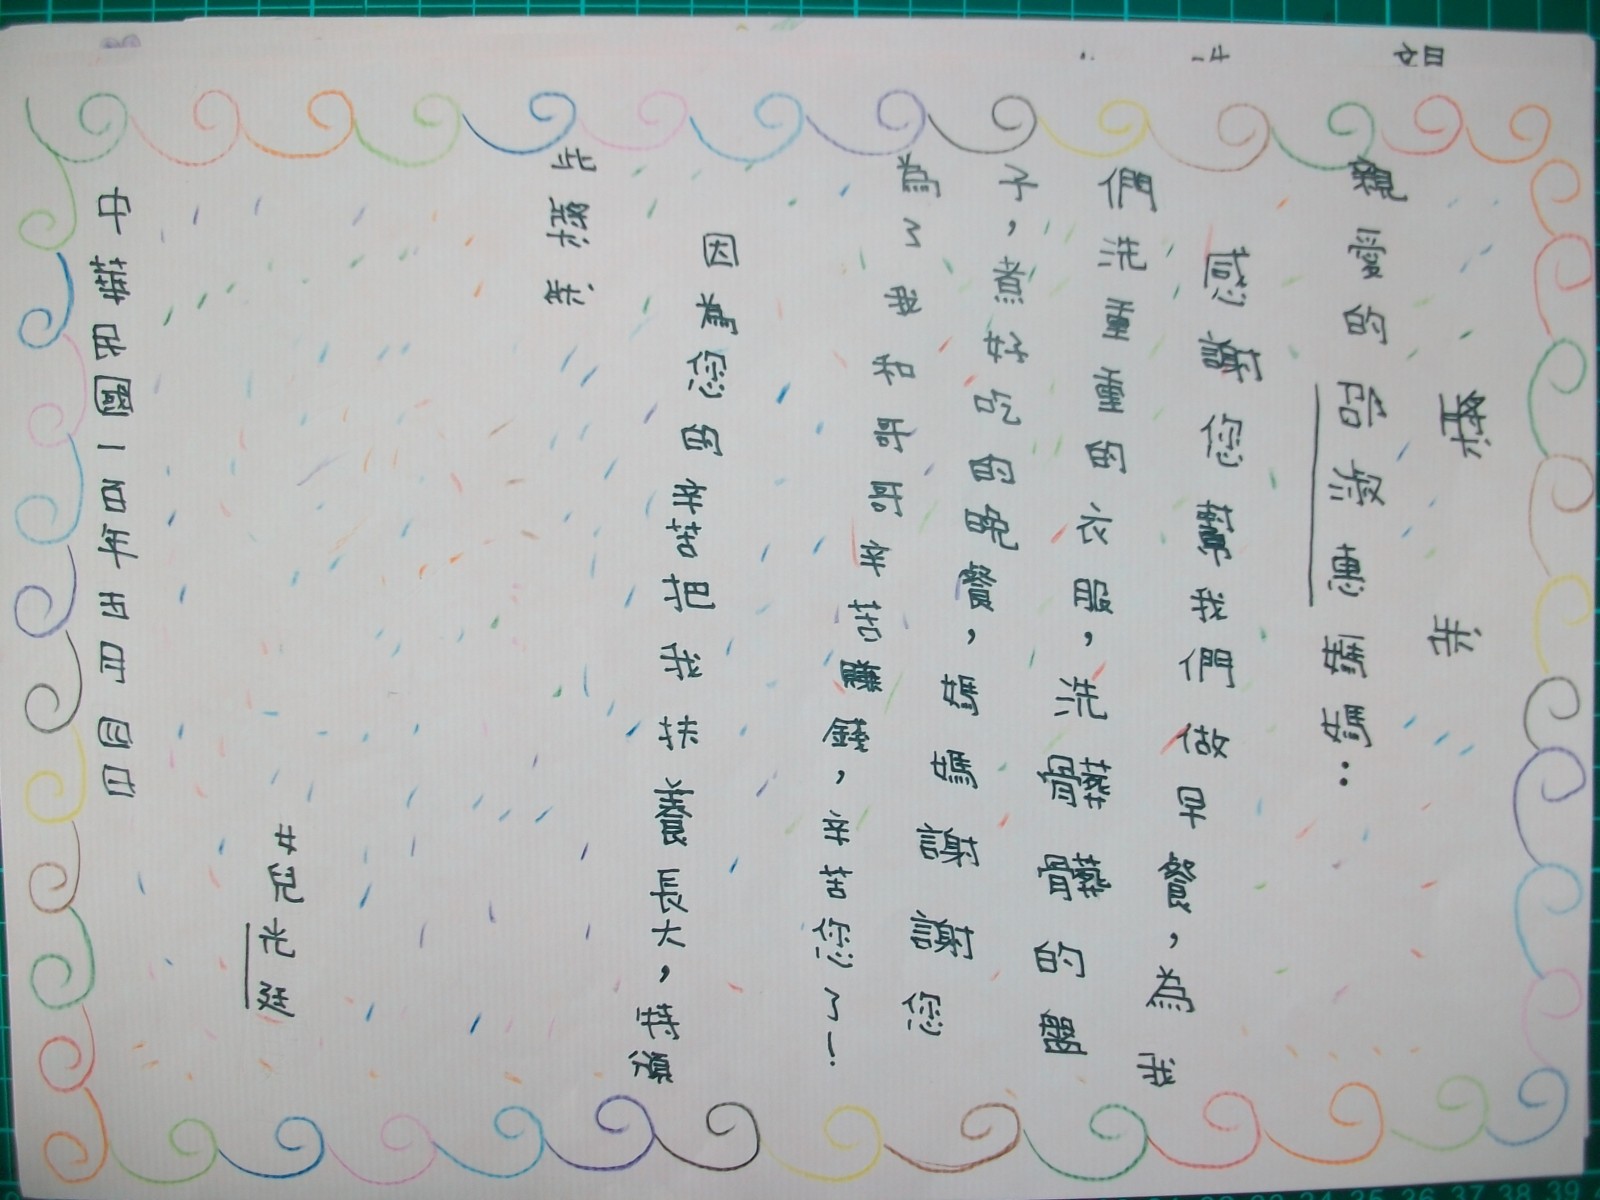 獎狀
親愛的呂淑惠媽媽：
感謝您幫我們做早餐，為我
們洗重重的衣服，洗髒髒的鍋
子，煮好吃的晚餐，媽媽謝謝您
為了我和哥哥辛苦賺錢，辛苦您了！
因為您的辛苦把我扶養長大，特頒
此獎狀
女兒
中華民國一百年五月四日